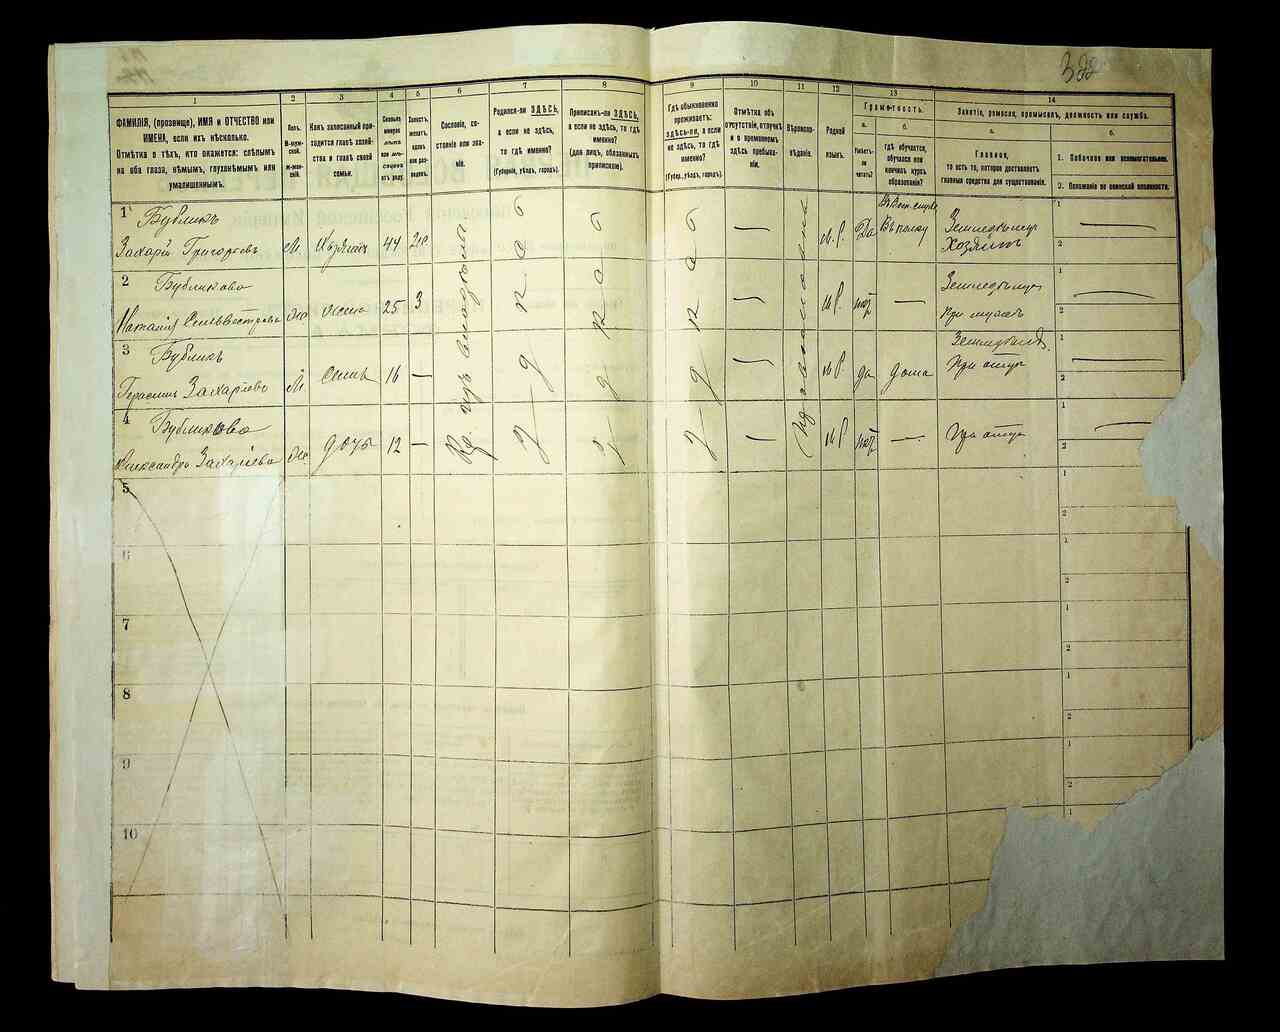 1
2
3
4
5
6
7
8
9
10
11
12
13
14
ФАМИЛІЯ, (прозвище), ИМЯ и ОТЧЕСТВО или
ИМЕНА, если ихъ нѣсколько.
Отмѣтка о тѣхъ, кто окажется: слѣпымъ
на оба глаза, нѣмымъ, глухонѣмымъ или
умалишеннымъ.
Полъ.
М-мужской.
Ж-женскій.
Какъ записанный при-
ходится главѣ хозяй-
ства и главѣ своей
семьи.
Сколько
минуло
лѣтъ
или мѣ-
сяцевъ
отъ роду.
Холостъ,
женатъ,
вдовъ
или раз-
веденъ.
Сословіе, со-
стояніе или зва-
ніе.
Родился-ли ЗДѢСЬ,
а если не здѣсь,
то гдѣ именно?
(Губернія, уѣздъ, городъ).
Приписанъ-ли ЗДѢСЬ,
а если не здѣсь, то гдѣ
именно?
(для лицъ, обязанныхъ
припискою).
Гдѣ обыкновенно
проживаетъ:
ЗДѢСЬ-ЛИ, а если
не здѣсь, то гдѣ
именно?
(Губер., уѣздъ, городъ).
Отмѣтка объ
отсутствіи, отлучкѣ
и о временномъ
здѣсь пребыва-
ніи.
Вѣроиспо-
вѣданіе.
Родной
языкъ.
Грамотность.
а.
б.
Умѣетъ-ли
читать?
гдѣ обучается,
обучался или
кончилъ курсъ
образованія?
Занятіе, ремесло, промыселъ, должность или служба.
а.
б.
Главное,
то есть то, которое доставляетъ
главныя средства для существованія.
1. Побочное или вспомогательное.
2. Положеніе по воинской повинности.
1
Бубликъ
Захарій Григорьевъ
М. Хозяинъ 44 Да
Въ полку
Земледѣлецъ
Хозяинъ
1
2
2
Бубликова
Наталія Сильвестрова
жена 25 3 нѣт —
Земледѣлец
при мужѣ
1
2
3
Бубликъ
Герасимъ Захаріевъ
М Сынъ 16 — да дома
при отцѣ
1
2
4
Бубликова
Александра Захаріева
дочь 12 — нѣт —
при отцѣ
1
2
5
1
2
6
1
2
7
1
2
8
1
2
9
1
2
10
1